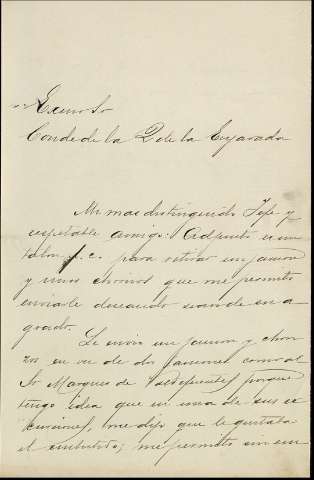 Excmo Sr
Conde de la P. de la Enjarada
Mi mas distinguido Jefe y
respetable amigo: Adjunto un
talon f. c. para retirar un jamon
y unos chorizos que me permito
enviarle deseando sean de su a
grado.
Le envio un jamon y chori
zos en vez de dos jamones como al
Sr Marques de Valdefuentes porque
tengo idea que en una de sus ex
cursiones, me dijo que le gustaba
el embutido; me permito sin em